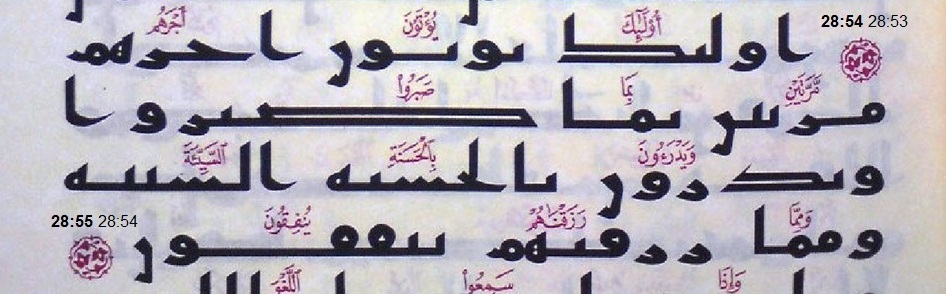 28:54 28:53
أُو۟لَٰٓئِكَ يُؤْتَوْنَ أَجْرَهُم
اولىک ىوىوں احرهم
مَّرَّتَيْنِ بِمَا صَبَرُوا۟
مرىىں ىما صىروا
وَيَدْرَءُونَ بِٱلْحَسَنَةِ ٱلسَّيِّئَةَ
وىدروں ىالحسىه السىىه
وَمِمَّا رَزَقْنَٰهُمْ يُنفِقُونَ
ومما ررڡىهم ىىڡڡوں
28:55 28:54
وَإِذَا سَمِعُوا۟ ٱللَّغْوَ